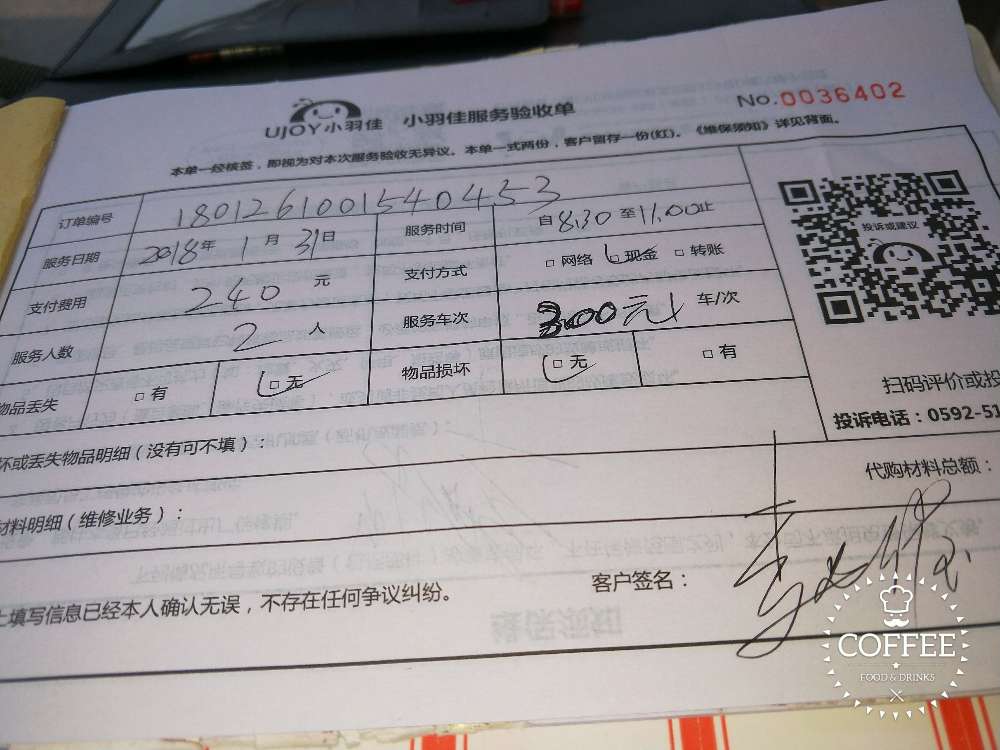 UJOY小羽佳 小羽佳服务验收单 No.0036402
本单一经核签，即视为对本次服务验收无异议。本单一式两份，客户留存一份(红)。《维保须知》详见背面。
订单编号 1801261001540453
服务日期 2018年 1月 31日 服务时间 自8:30至11:00止
支付费用 240 元 支付方式 □网络 □现金 □转账
服务人数 2 人 服务车次 300元 车/次
物品丢失 □有 □无 物品损坏 □无 □有
投诉或建议
扫码评价或投
投诉电话：0592-51
坏或丢失物品明细（没有可不填）：
材料明细（维修业务）： 代购材料总额：
上填写信息已经本人确认无误，不存在任何争议纠纷。 客户签名：
COFFEE
FOOD & DRINKS